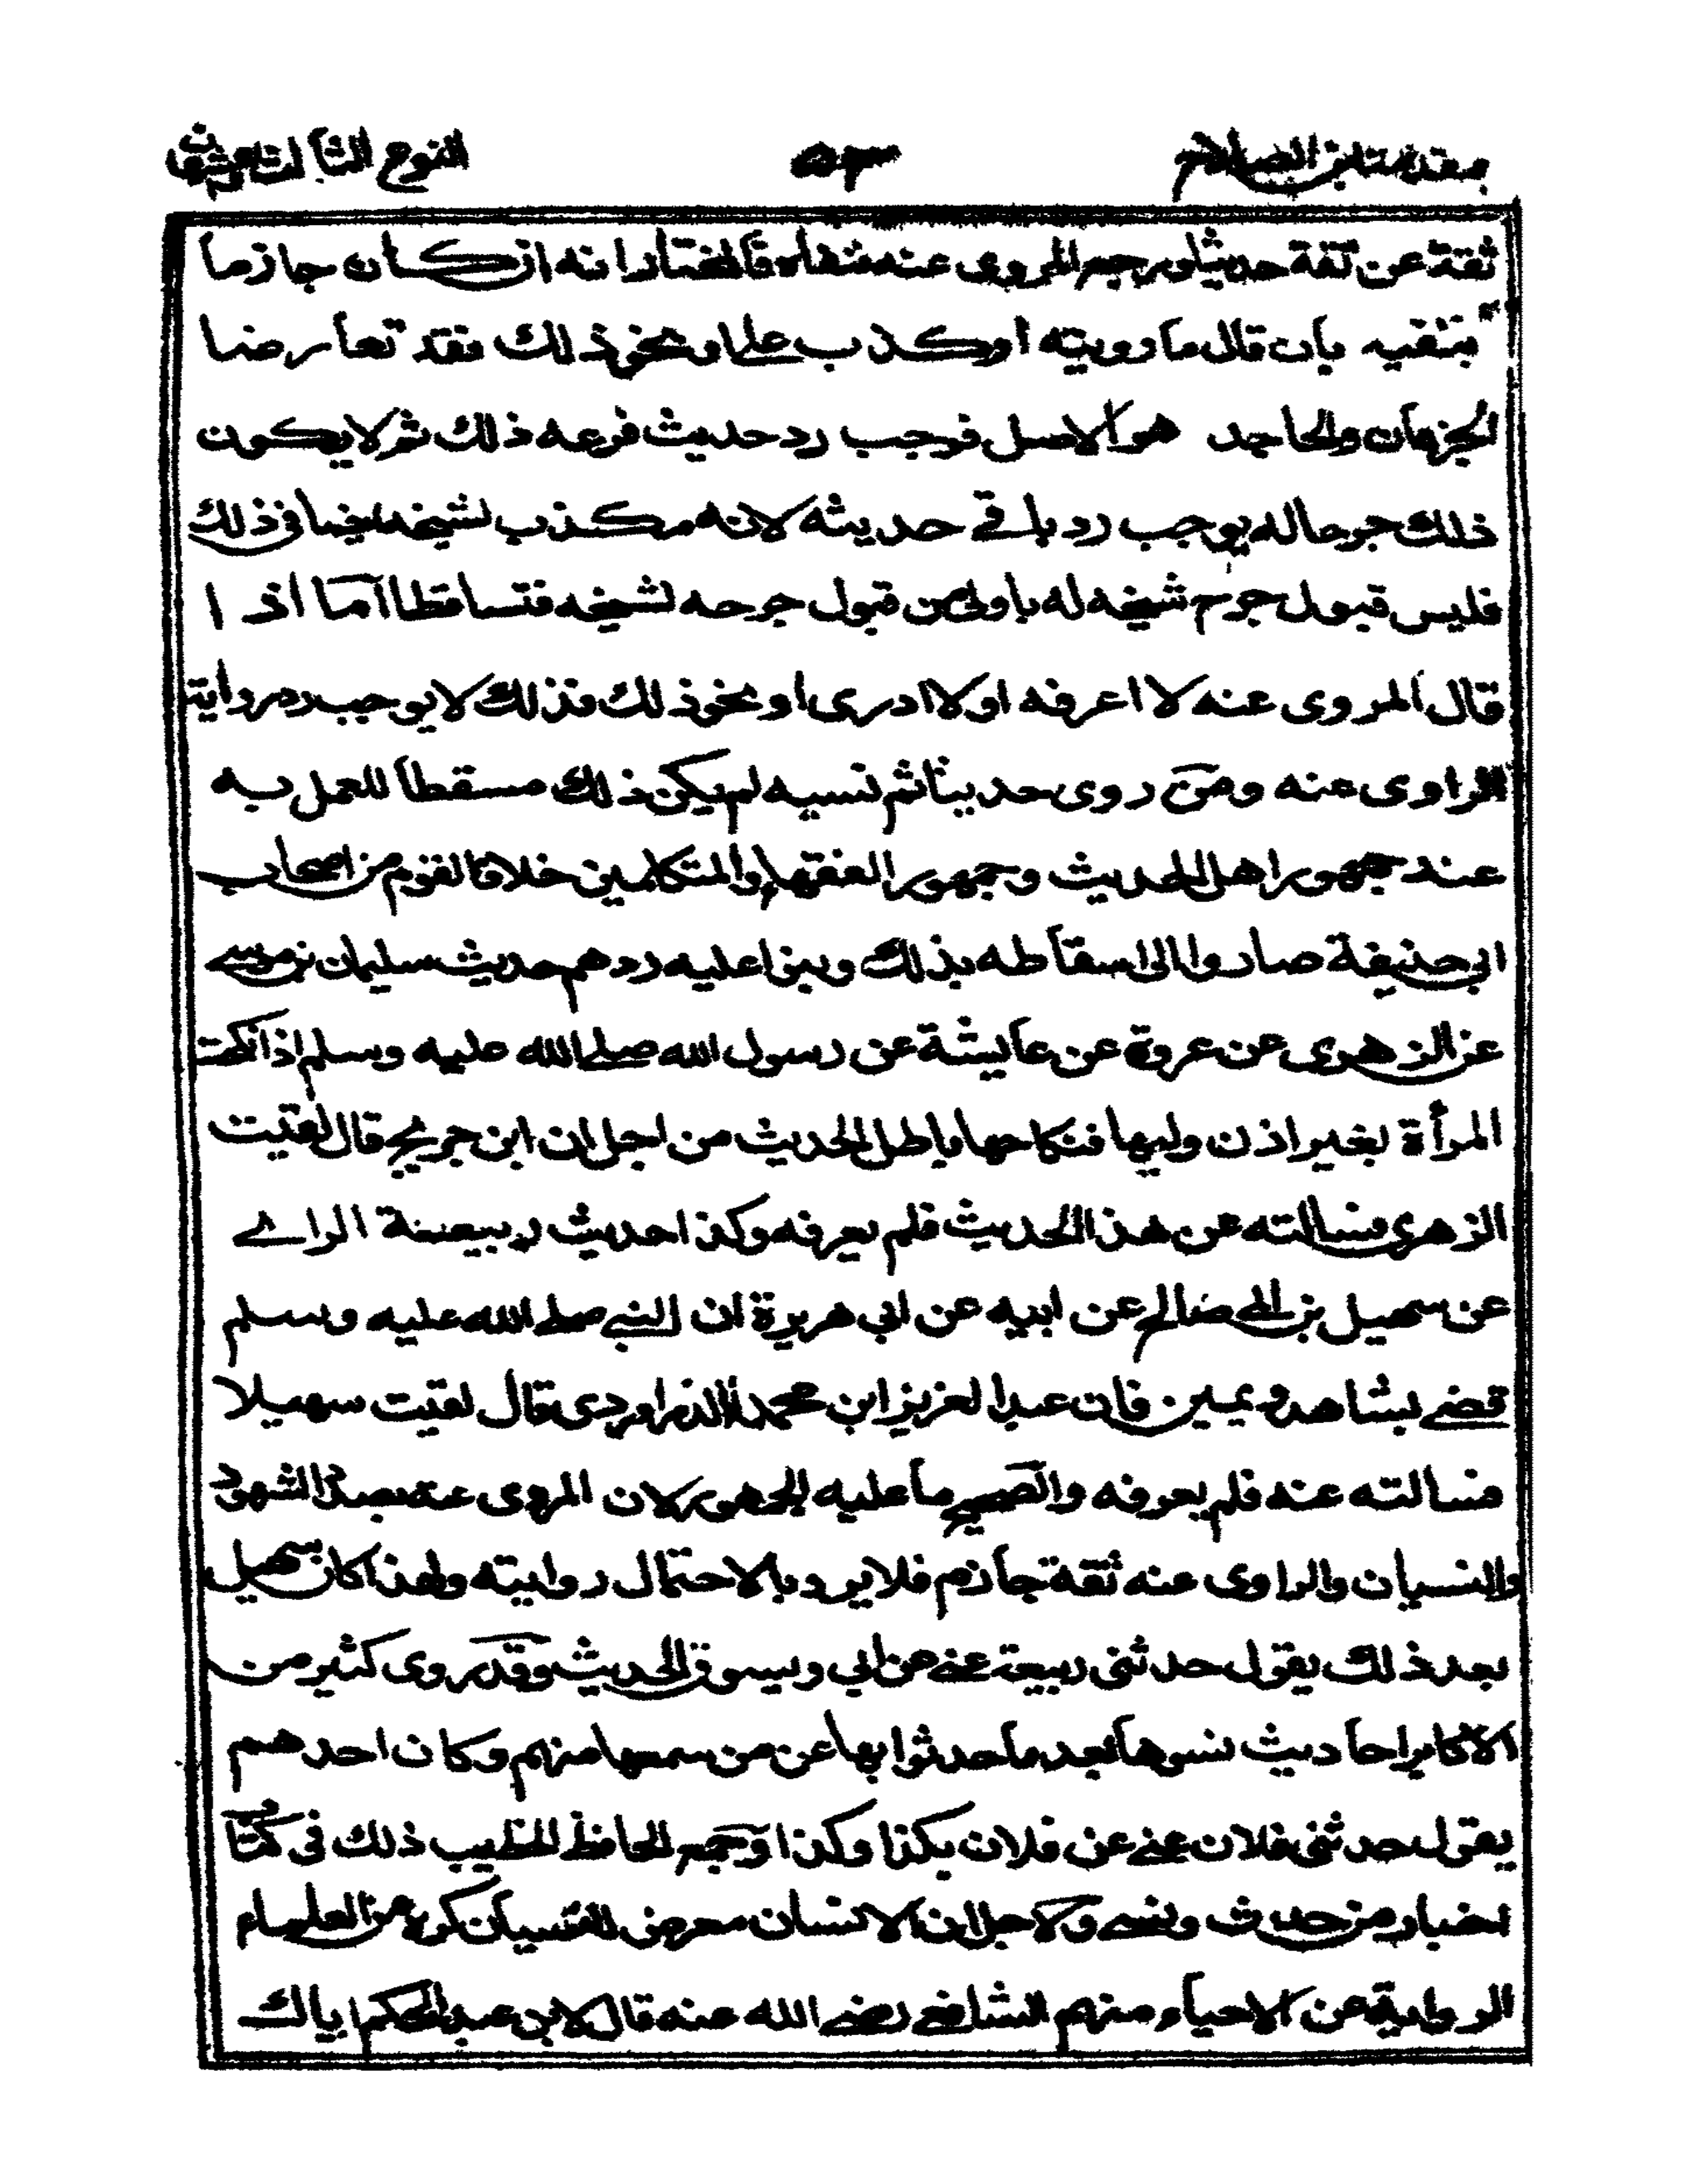 مقدمة ابن الصلاح ٥٣ النوع الثالث والعشرون
ثقة عن ثقة حديثا ورجع المروى عنه فنفاه فالمختار انه ان كان جازما
بنفيه بان قال ما رويته او كذب على او نحو ذلك فقد تعارضا
الجزمان والجاحد هو الاصل فوجب رد حديث فرعه ذلك ثم لا يكون
ذلك جرحا له يوجب رد باقے حديثه لانه مكذب لشيخه ايضا فى ذلك
فليس قبول جرح شيخه له باولى من قبول جرحه لشيخه فتساقطا اما اذا
قال المروى عنه لا اعرفه او لا ادرى او نحو ذلك فذلك لا يوجب رد رواية
الراوى عنه ومن روى حديثا ثم نسيه لم يكن ذلك مسقطا للعمل به
عند جمهور اهل الحديث وجمهور الفقهاء والمتكلمين خلافا لقوم من اصحاب
ابى حنيفة صاروا الى اسقاطه بذلك وبنوا عليه ردهم حديث سليمان بن موسے
عن الزهرى عن عروة عن عايشة عن رسول الله صلے الله عليه وسلم اذا نكحت
المرأة بغير اذن وليها فنكاحها باطل الحديث من اجل ان ابن جريج قال لقيت
الزهرى فسالته عن هذا الحديث فلم يعرفه وكذا حديث ربيعة الراے
عن سهيل بن ابى صالح عن ابيه عن ابي هريرة ان النبے صلے الله عليه وسلم
قضے بشاهد ويمين فان عبد العزيز ابن محمد الدراوردى قال لقيت سهيلا
فسالته عنه فلم يعرفه والصحيح ما عليه الجمهور لان المروى عنه بصدد الشهود
والنسيان والراوى عنه ثقة جازم فلا يرد بالاحتمال روايته ولهذا كان سهيل
بعد ذلك يقول حدثنى ربيعة عنے عن ابي ويسوق الحديث وقد روى كثير من
الاكابر احاديث نسوها بعد ما حدثوا بها عن من سمعها منهم وكان احدهم
يقول حدثنى فلان عنے عن فلان بكذا وكذا وجمع الحافظ الخطيب ذلك فى كتاب
اخبار من حدث ونسے ولاجل ان الانسان معرض للنسيان كره من العلماء
الرواية عن الاحياء منهم الشافعے رضے الله عنه قال لابن عبد الحكم اياك